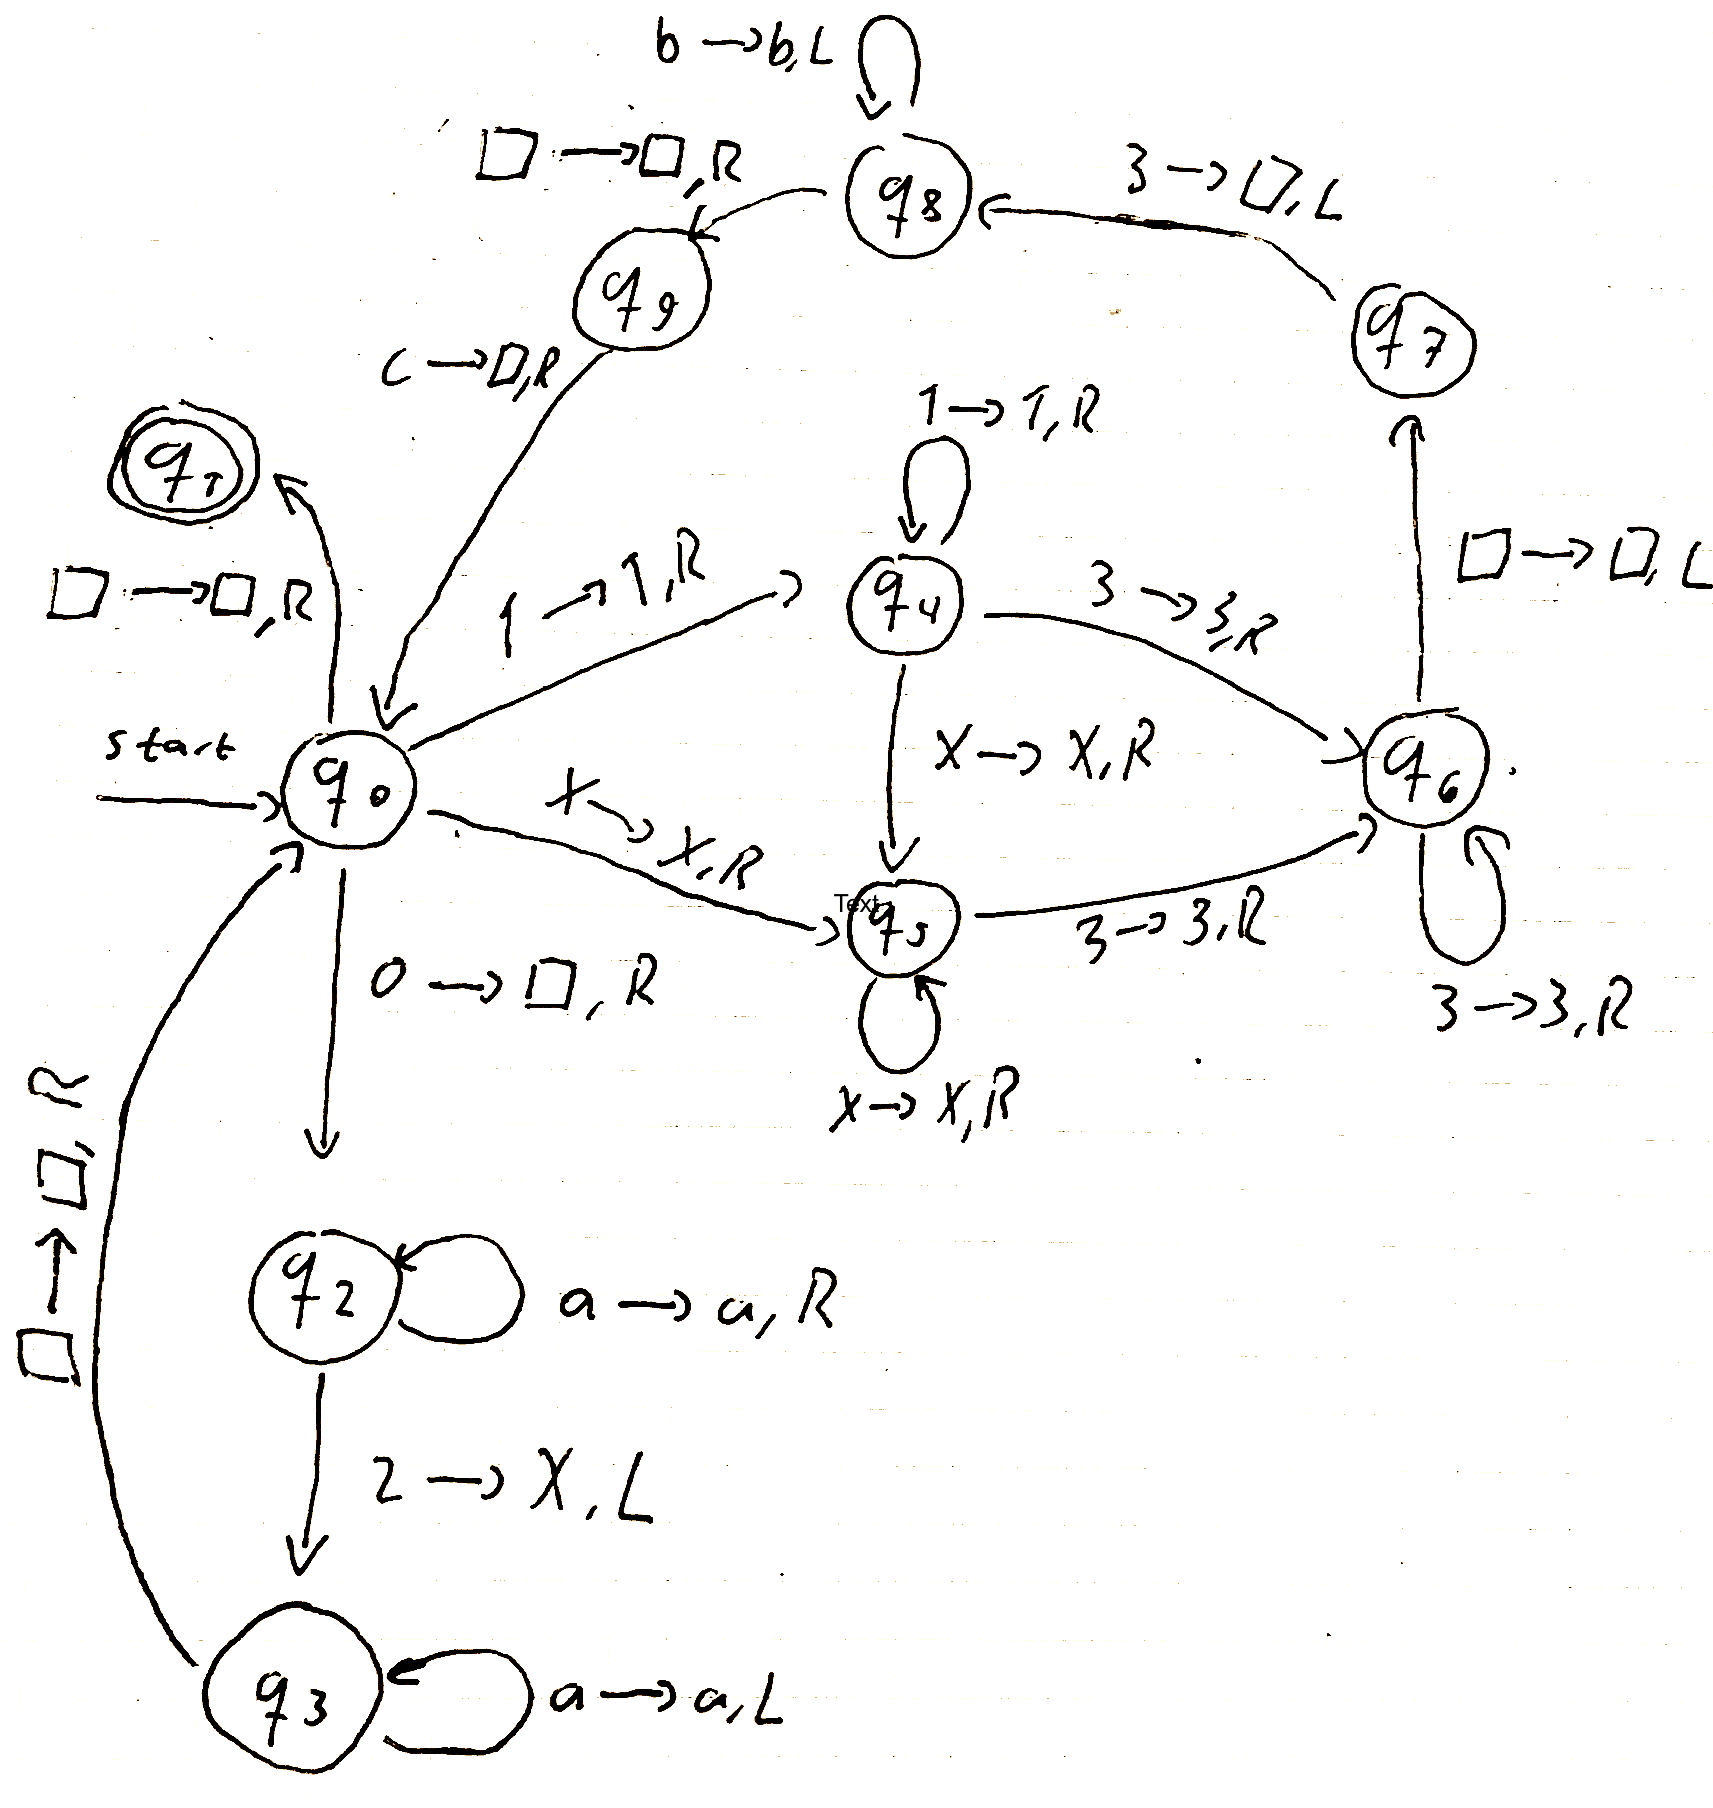 b → b, L
□ → □, R
3 → □, L
q8
q9
q7
c → □, R
1 → 1, R
q1
□ → □, R
1 → 1, R
q4
3 → 3, R
□ → □, L
start
q0
x → x, R
X → X, R
q6
Text
q5
3 → 3, R
0 → □, R
3 → 3, R
x → X, R
□ → □, R
q2
a → a, R
2 → X, L
q3
a → a, L